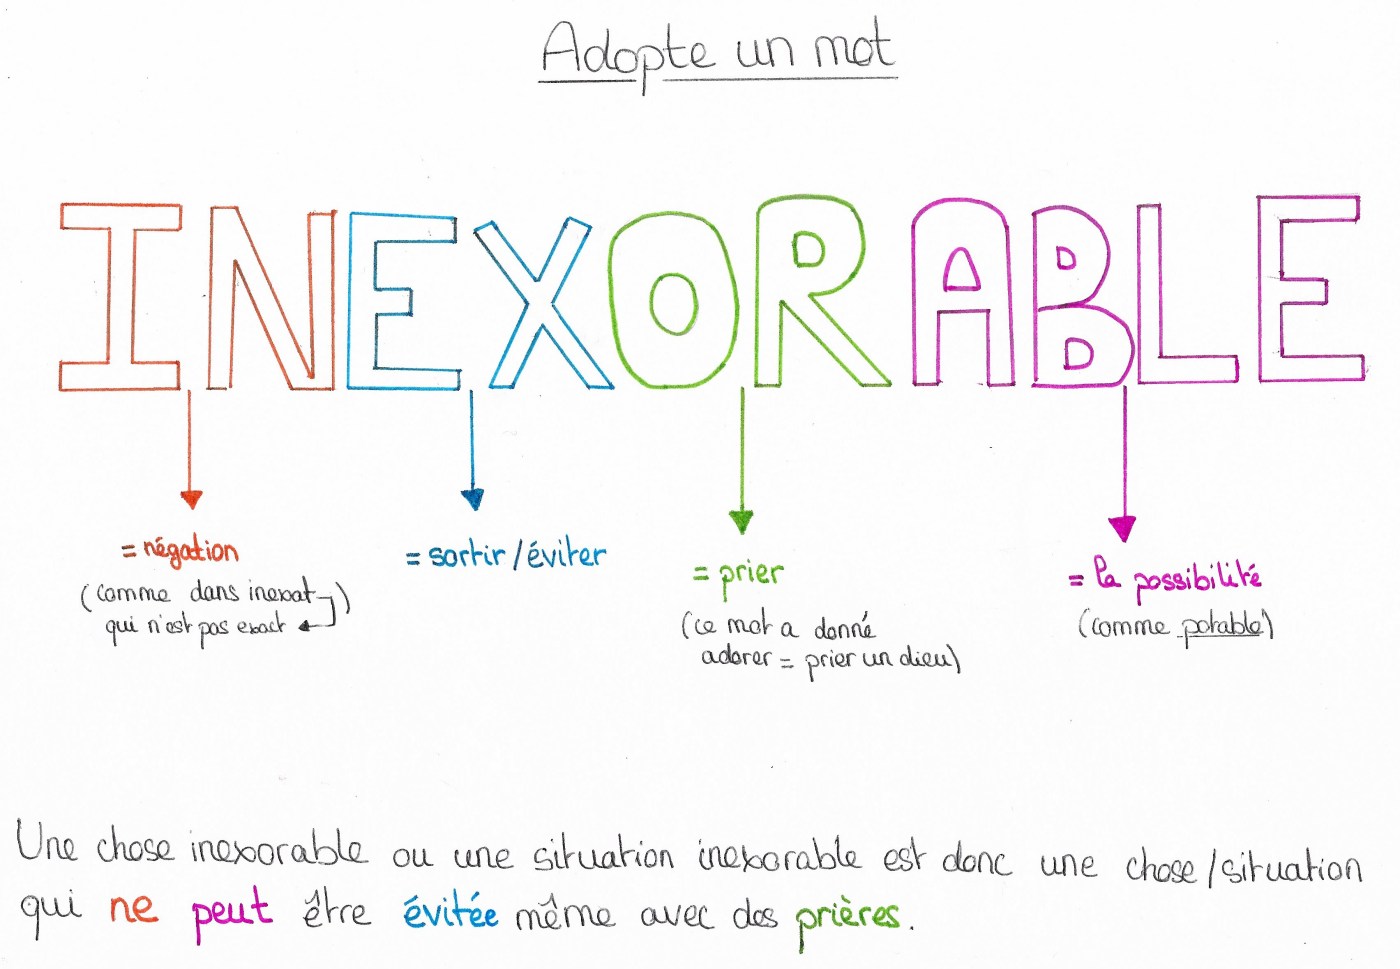 Adopte un mot
INEXORABLE
= négation
(comme dans inexact
qui n'est pas exact)
= sortir/éviter
= prier
(ce mot a donné
adorer = prier un dieu)
= la possibilité
(comme potable)
Une chose inexorable ou une situation inexorable est donc une chose/situation
qui ne peut être évitée même avec des prières.